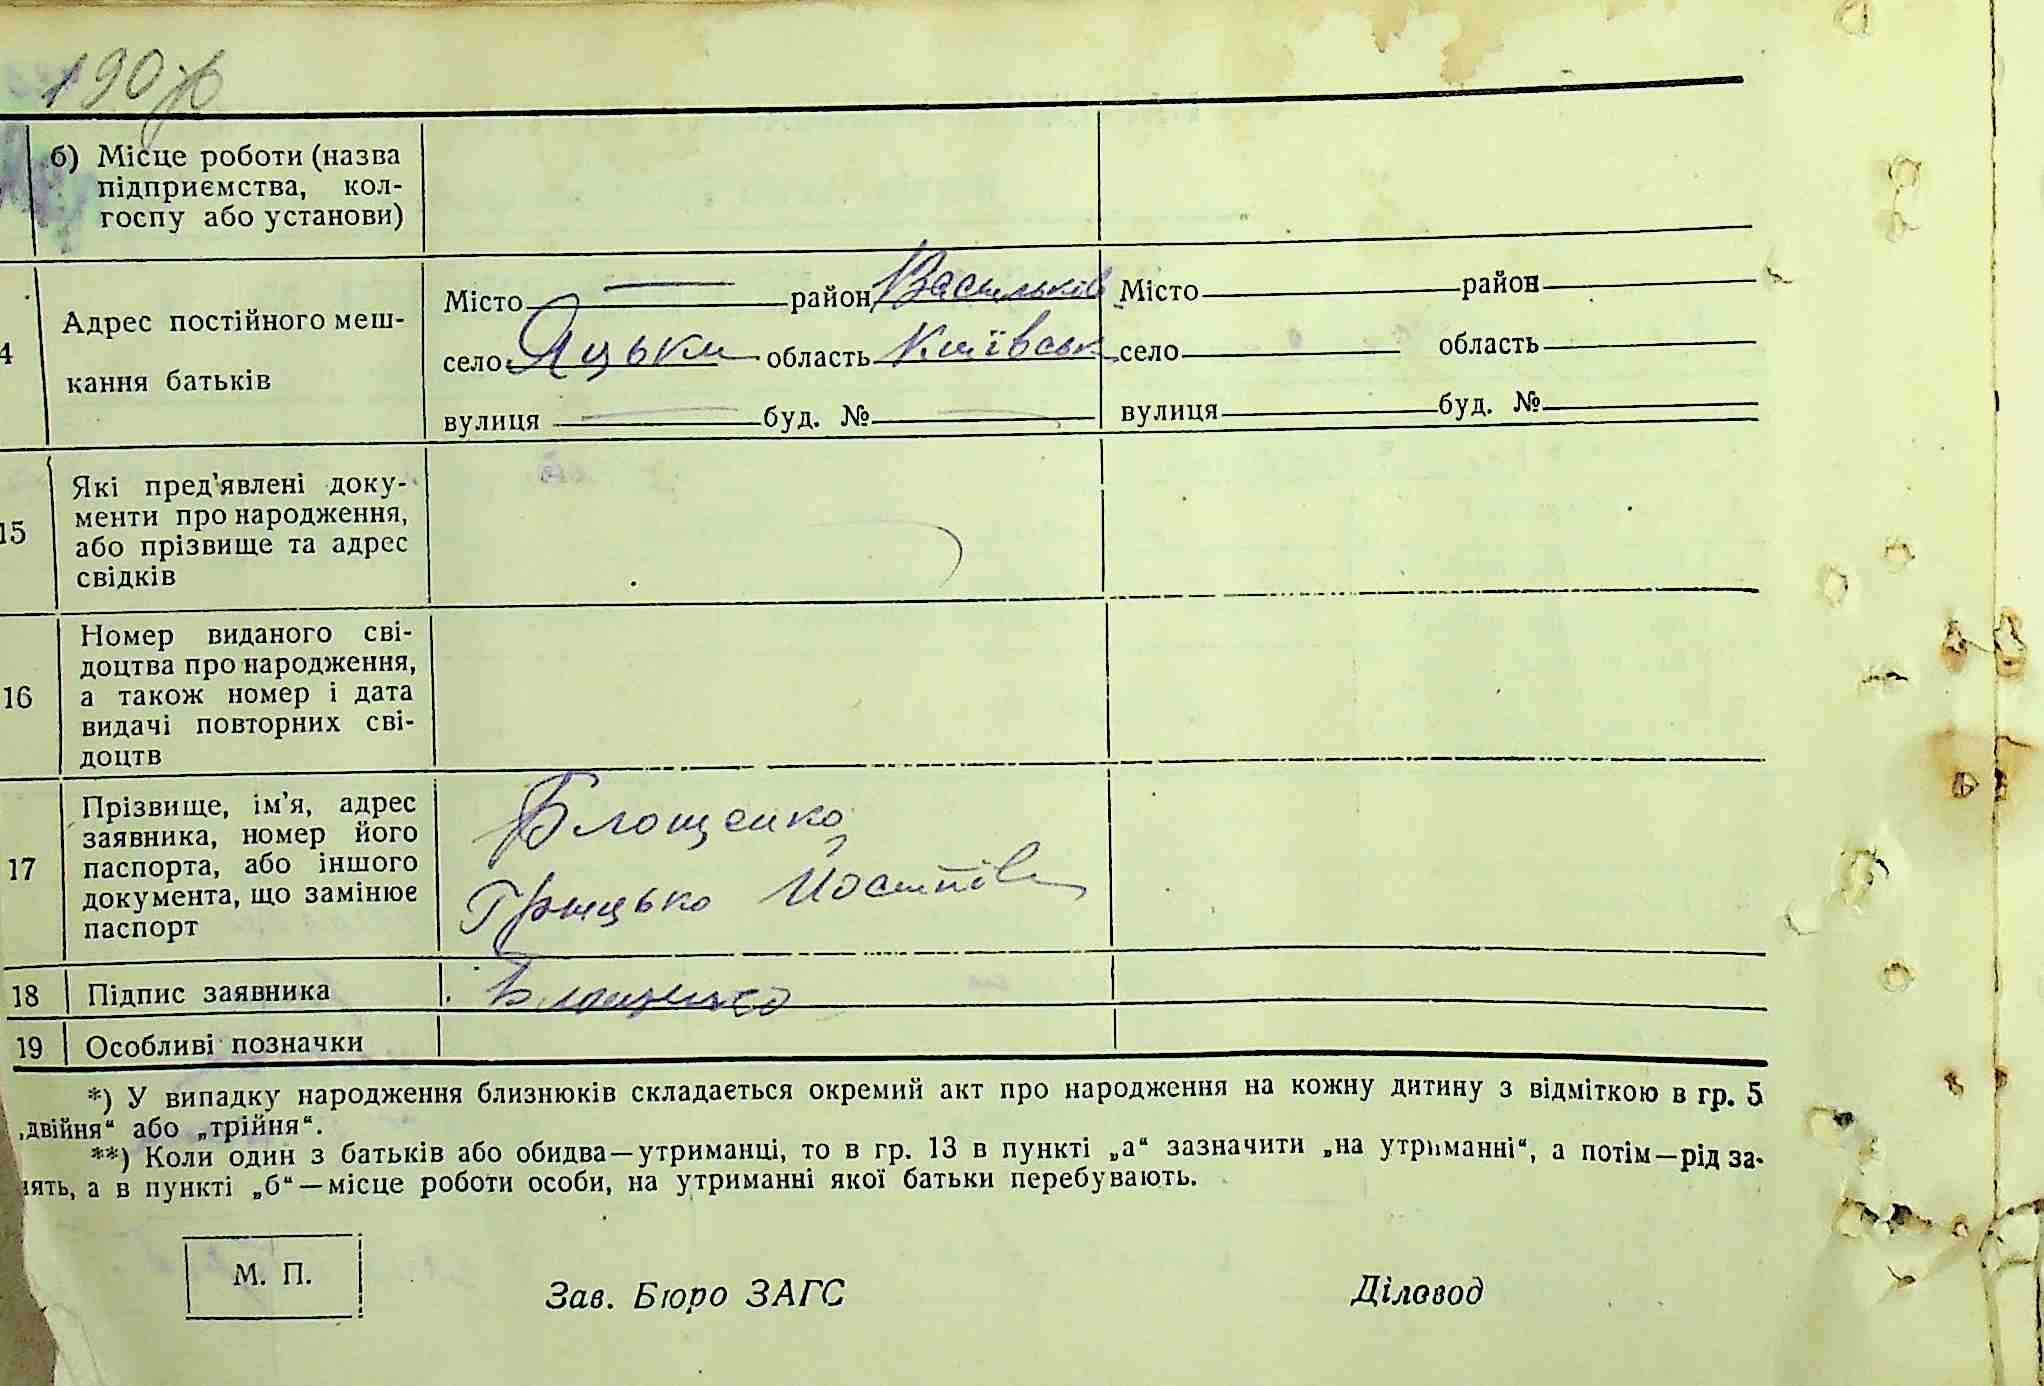 190
б) Місце роботи (назва
підприємства, кол-
госпу або установи)
4
Адрес постійного меш-
кання батьків
Місто — район Васильків
село Яцьки область Київськ
вулиця — буд. № —
Місто район
село область
вулиця буд. №
15
Які пред'явлені доку-
менти про народження,
або прізвище та адрес
свідків
16
Номер виданого сві-
доцтва про народження,
а також номер і дата
видачі повторних сві-
доцтв
17
Прізвище, ім'я, адрес
заявника, номер його
паспорта, або іншого
документа, що замінює
паспорт
Блощенко
Грицько Йосипів
18 Підпис заявника
Блощенко
19 Особливі позначки
*) У випадку народження близнюків складається окремий акт про народження на кожну дитину з відміткою в гр. 5
„двійня“ або „трійня“.
**) Коли один з батьків або обидва—утриманці, то в гр. 13 в пункті „а“ зазначити „на утриманні“, а потім—рід за-
нять, а в пункті „б“—місце роботи особи, на утриманні якої батьки перебувають.
М. П.
Зав. Бюро ЗАГС
Діловод